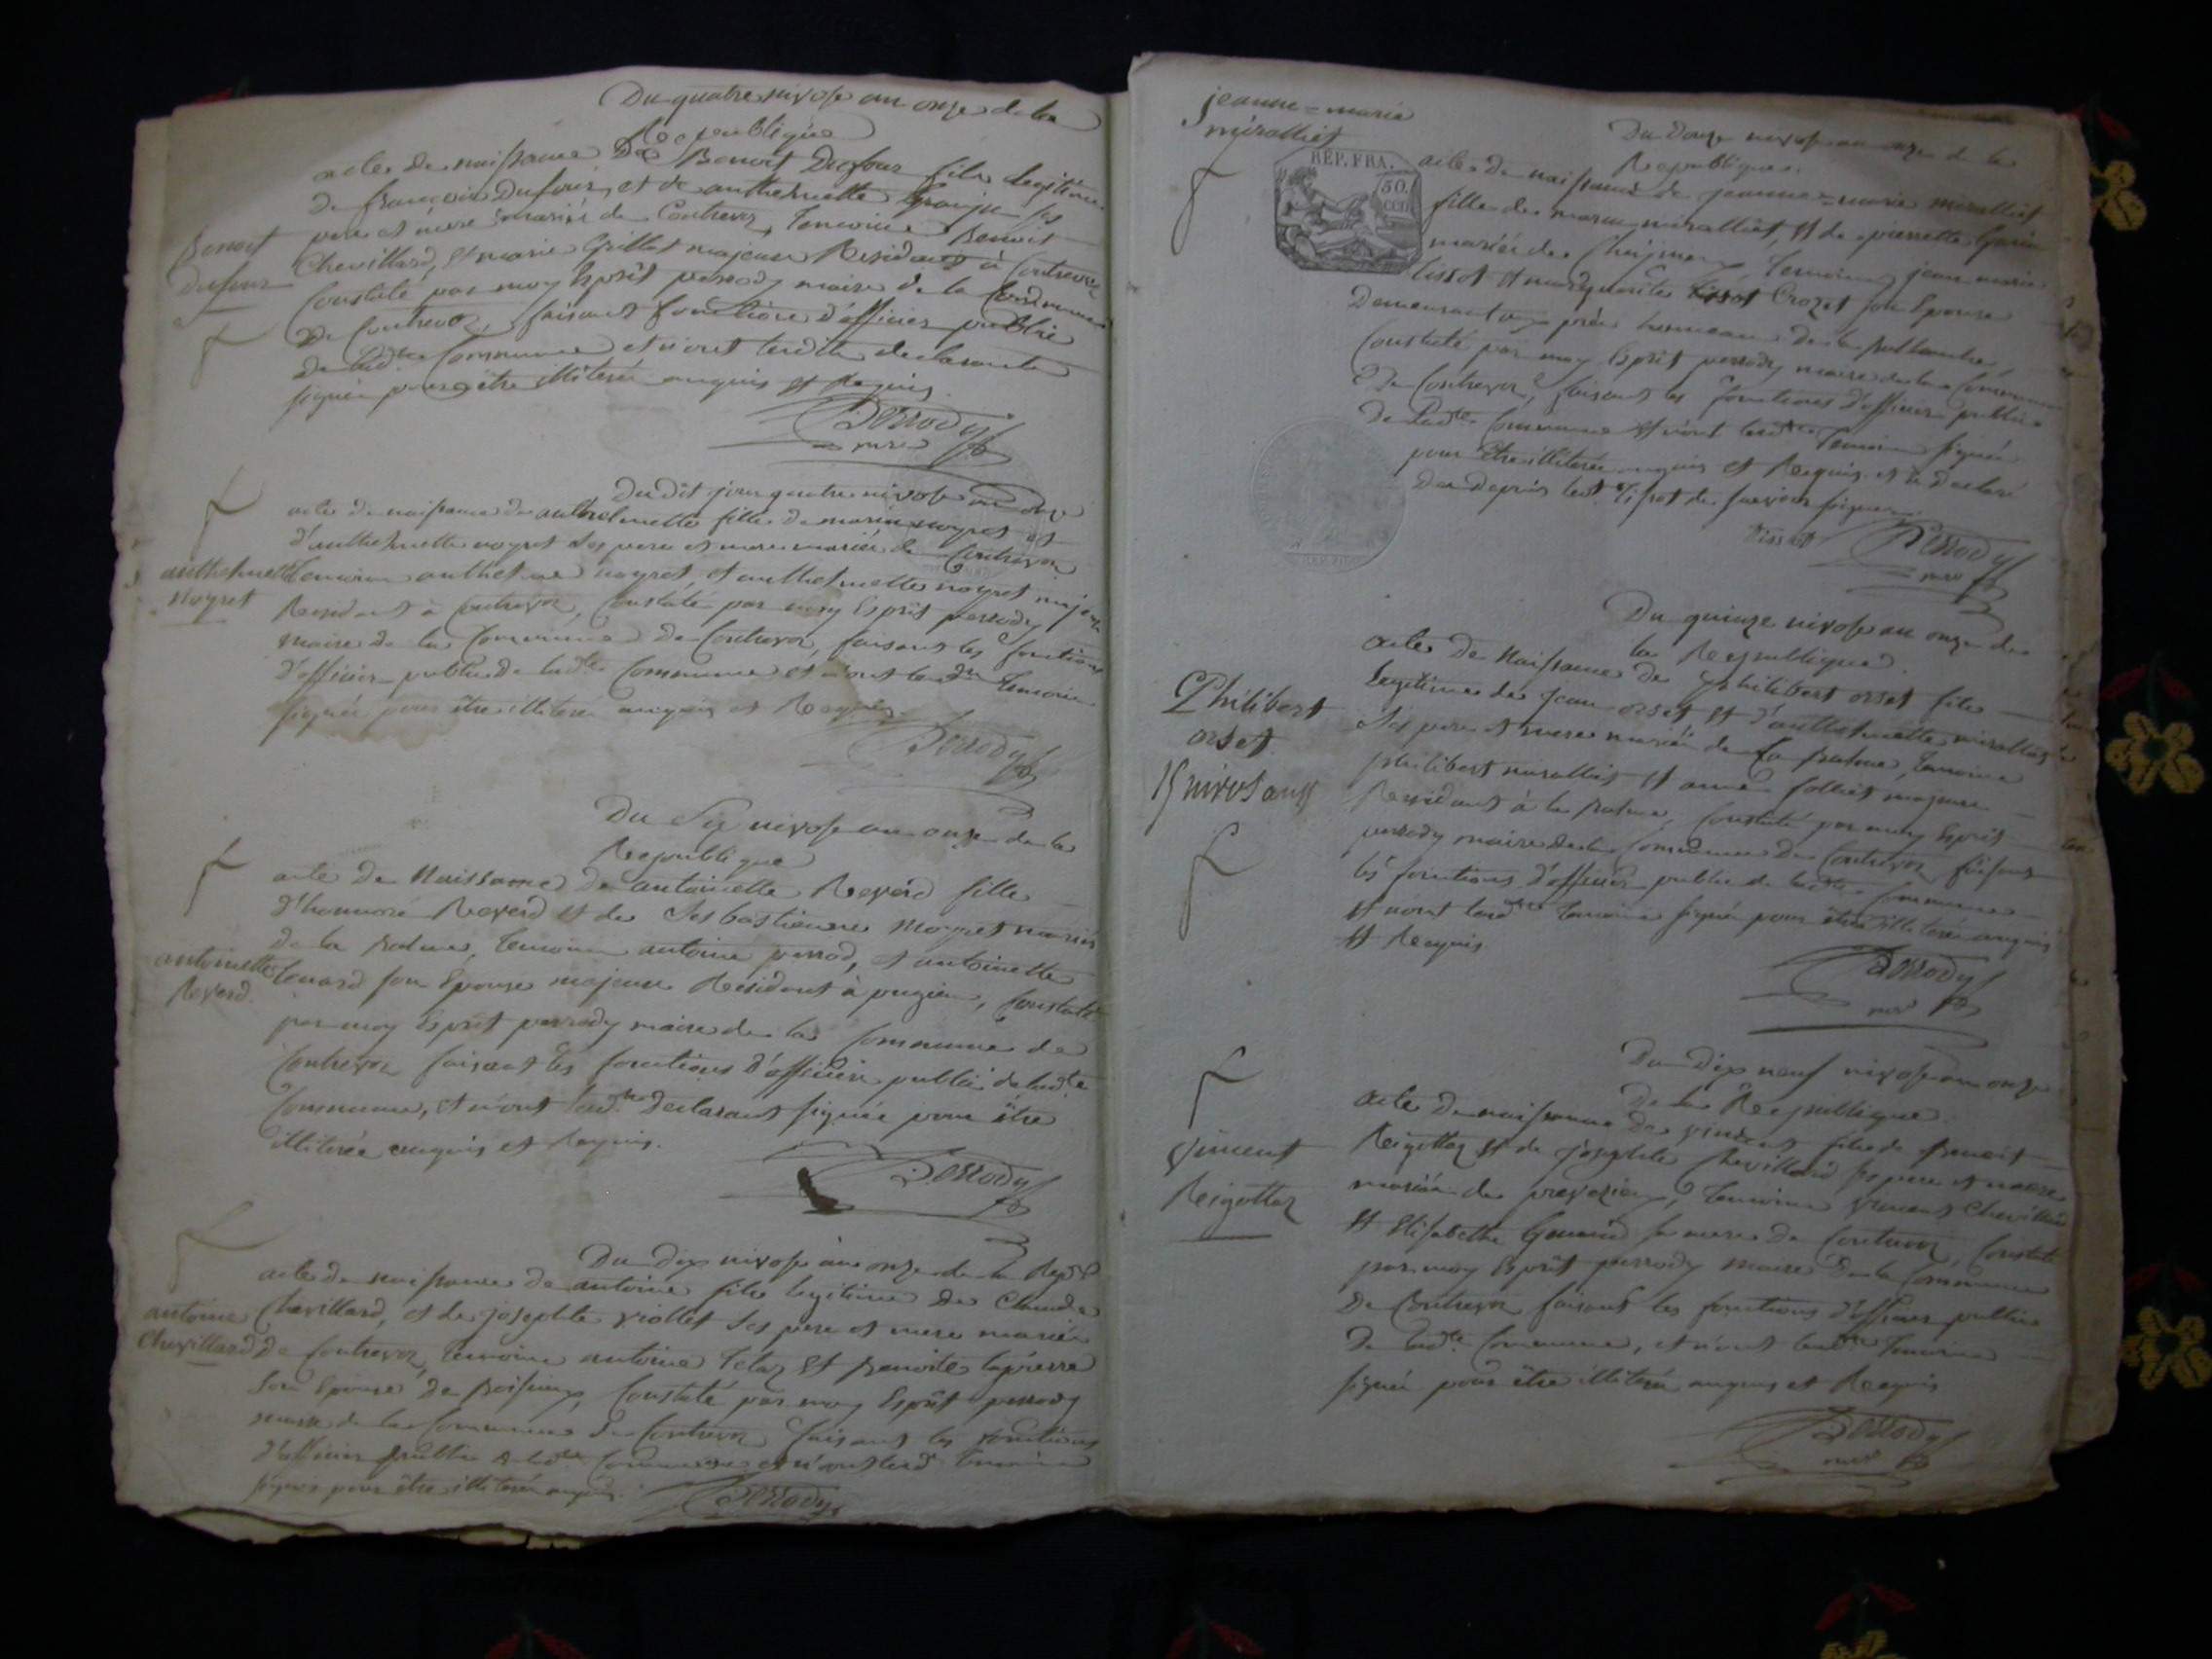 Du quatre nivose an onze de la
Republique
acte de naissance De Benoit Dufour fils legitime
De françois Dufour, et de anthelmette Grange ses
pere et mere mariés de Contrevoz, temoins Benoit
Chevillard, et marie Grillet majeurs Residants à Contrevoz
Constaté par moy Esprit perrody maire de la Commune
De Contrevoz, faisant fonctions d'officier public
De lad.te Commune et n'ont lesdits declarants
signés pour être illiterés enquis et Requis
Benoit
Dufour
Perrody
maire
Du dit jour quatre nivose an onze
acte de naissance de anthelmette fille de marin noyret et
d'anthelmette noyret ses pere et mere mariés de Contrevoz
temoins anthelme noyret, et anthelmette noyret majeurs
Residants à Contrevoz, Constaté par moy Esprit perrody
maire de la Commune De Contrevoz, faisant les fonctions
d'officier public de lad.te Commune et n'ont lesd.ts temoins
signés pour être illiterés enquis et Requis
anthelmette
Noyret
Perrody
Du Six nivose an onze de la
Republique
acte de Naissance de antoinette Reverd fille
d'honnoré Reverd et de Sesbastienne Moyret mariés
de la , temoins antoine perrod, et antoinette
 son Epouse majeurs Residants à pugieu, Constaté
par moy Esprit perrody maire de la Commune de
Contrevoz faisant les fonctions d'officier public de lad.te
Commune, et n'ont lesd.ts declarants signés pour être
illiterés enquis et Requis.
antoinette
Reverd.
Perrody
Du dix nivose an onze de la Rep.
acte de naissance de antoine fils legitime de Claude
Chevillard, et de josephte viollet ses pere et mere mariés
De Contrevoz, temoins antoine et Benoite
son Epouse de , Constaté par moy Esprit perrody
maire de la Commune De Contrevoz faisant les fonctions
d'officier public de lad.te Commune et n'ont lesd. temoins
signés pour être illiterés enquis.
antoine
Chevillard
Perrody
jeanne=marie
miralliet
RÉP. FRA.
50.
CEN.
Du Douze nivose an onze de la
Republique.
acte de naissance de jeanne=marie miralliet
fille de marin miralliet, et de pierrette
mariés de , temoins jean marie
tissot et marguerite Crozet son Epouse
Demeurant aux près hameau de la
Constaté par moy Esprit perrody maire de la Commune
De Contrevoz, faisant les fonctions d'officier public
de Lad.te Commune et n'ont lesd.ts temoins signés
pour être illiterés enquis et Requis et à declaré
 tissot de signer
Tissot
Perrody
maire
Du quinze nivose an onze de
la Republique.
acte De Naissance de philibert orset fils
Legitime de Jean orset et d'anthelmette miralliet
ses pere et mere mariés de La , temoins
philibert miralliet et anne folliet majeurs
Residants à la , Constaté par moy Esprit
perrody maire de la Commune De Contrevoz faisant
les fonctions d'officier public de lad.te Commune
et n'ont lesd.ts temoins signés pour être illiterés enquis
et Requis
Philibert
orset
15 nivos an 11
Perrody
maire
Du Dix neuf nivose an onze
De la Republique.
acte De naissance de vincent fils de Benoit
Reigottaz et de josephte Chevillard ses pere et mere
mariés de , temoins vincent Chevillard
et Elisabethe sa mere De Contrevoz, Constaté
par moy Esprit perrody maire De la Commune
De Contrevoz faisant les fonctions d'officier public
De lad.te Commune, et n'ont lesd.ts temoins
signés pour être illiterés enquis et Requis
Vincent
Reigottaz
Perrody
maire